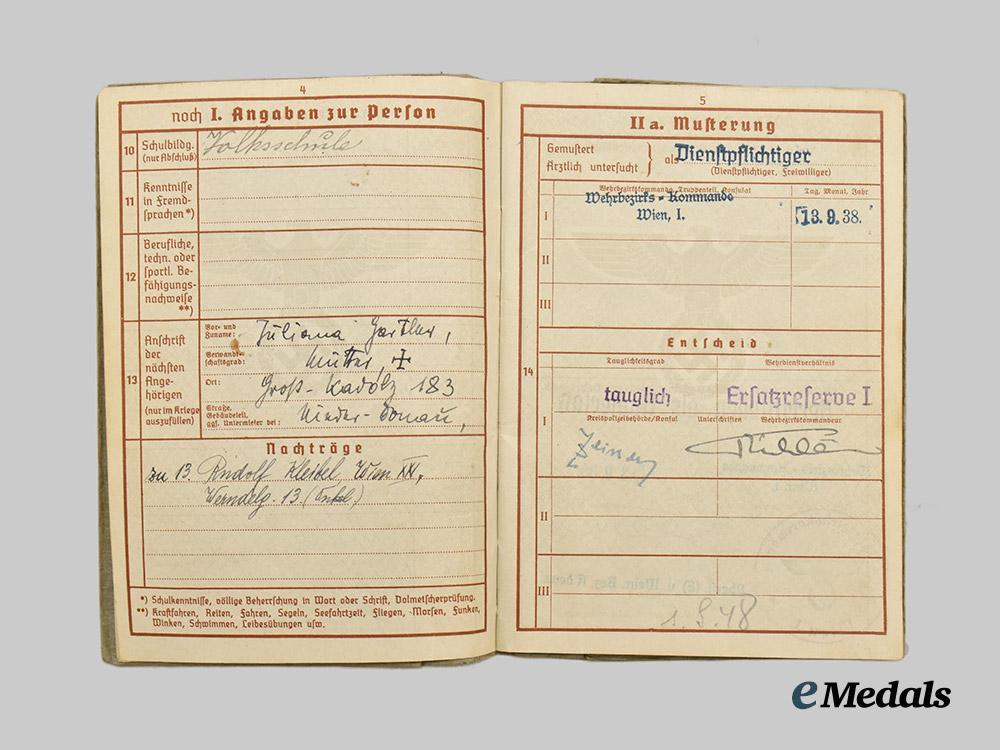 4
noch I. Angaben zur Person
10 Schulbildg. (nur Abschluß) Volksschule
11 Kenntnisse in Fremd-
sprachen*)
12 Berufliche,
techn. oder
sportl. Be-
fähigungs-
nachweise
**)
13 Anschrift
der
nächsten
Ange-
hörigen
(nur im Kriege
auszufüllen)
Vor- und
Zuname: Juliana Gartler,
Verwandt-
schaftsgrad: Mutter
Ort: Groß-Kadolz 183
Straße,
Gebäudeteil,
ggf. Untermieter bei: Nieder-Donau,
Nachträge
zu 13. Rudolf Kleibel, Wien XX,
Werndlg. 13. (Onkel)
*) Schulkenntnisse, völlige Beherrschung in Wort oder Schrift, Dolmetscherprüfung.
**) Kraftfahren, Reiten, Fahren, Segeln, Seefahrtzeit, Fliegen, Morsen, Funken,
Winken, Schwimmen, Leibesübungen usw.
5
II a. Musterung
Gemustert
Ärztlich untersucht } als Dienstpflichtiger
(Dienstpflichtiger, Freiwilliger)
Wehrbezirkskommando, Truppenteil, Konsulat
Tag, Monat, Jahr
I Wehrbezirks-Kommando
Wien, I.
13. 9. 38.
II
III
Entscheid
14
Tauglichkeitsgrad
Wehrdienstverhältnis
I tauglich
Ersatzreserve I
Kreispolizeibehörde/Konsul
Unterschriften
Wehrbezirkskommandeur
II
III
1. 9. 48
eMedals